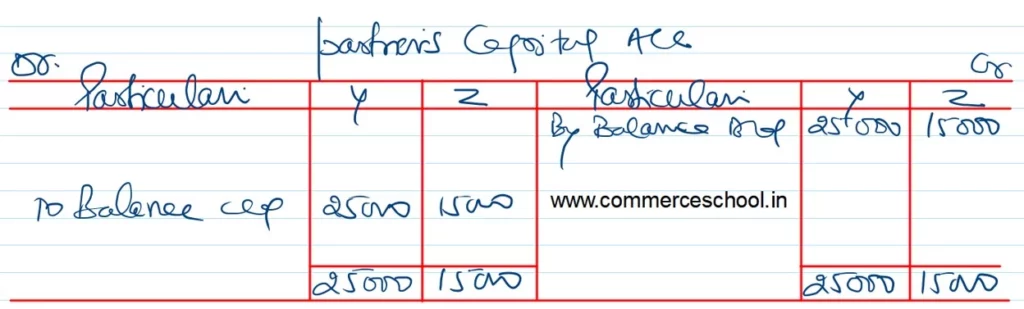 Partner's Capital A/cs
Dr. Cr
Particulars Y Z Particulars Y Z
By Balance b/d 25000 15000
To Balance c/d 25000 15000 www.commerceschool.in
25000 15000 25000 15000